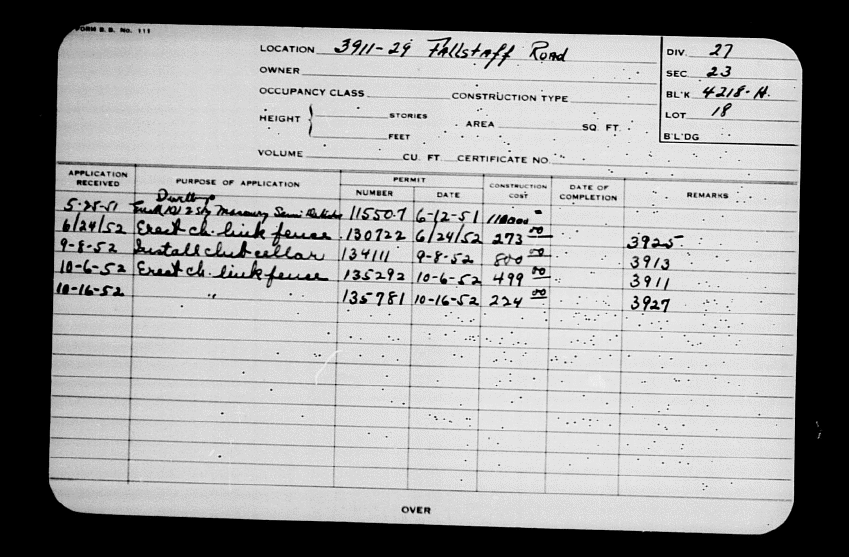 FORM B.B. No. 111
LOCATION 3911-29 Fallstaff Road
DIV. 27
OWNER
SEC. 23
OCCUPANCY CLASS CONSTRUCTION TYPE
BL'K 4218-H.
HEIGHT STORIES FEET AREA SQ. FT.
LOT 18
B'L'DG
VOLUME CU. FT. CERTIFICATE NO.
APPLICATION RECEIVED PURPOSE OF APPLICATION PERMIT NUMBER DATE CONSTRUCTION COST DATE OF COMPLETION REMARKS
5-25-51 2 Sty Masonry Semi 115507 6-12-51
6/24/52 Erect ch. link fence 130722 6/24/52 273 00 3925
9-8-52 Install club cellar 134111 9-8-52 800 00 3913
10-6-52 Erect ch. link fence 135292 10-6-52 499 00 3911
10-16-52 " 135781 10-16-52 224 00 3927
OVER